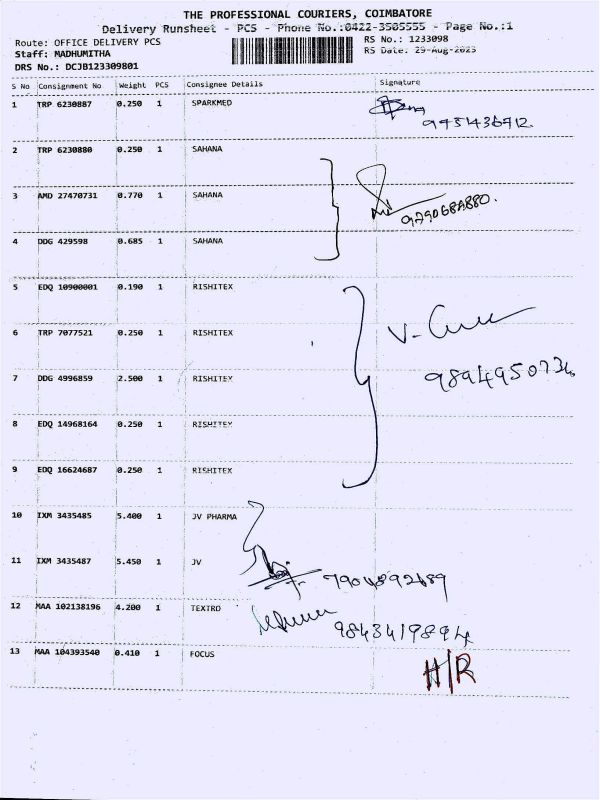 THE PROFESSIONAL COURIERS, COIMBATORE
Delivery Runsheet - PCS - Phone No.:0422-3505555 - Page No.:1
Route: OFFICE DELIVERY PCS RS No.: 1233098
Staff: MADHUMITHA RS Date: 29-Aug-2023
DRS No.: DCJB123309801
S No Consignment No Weight PCS Consignee Details Signature
1 TRP 6230887 0.250 1 SPARKMED
2 TRP 6230880 0.250 1 SAHANA
3 AMD 27470731 0.770 1 SAHANA
4 DDG 429598 0.685 1 SAHANA
5 EDQ 10900001 0.190 1 RISHITEX
6 TRP 7077521 0.250 1 RISHITEX
7 DDG 4996859 2.500 1 RISHITEX
9894950736
8 EDQ 14968164 0.250 1 RISHITEX
9 EDQ 16624687 0.250 1 RISHITEX
10 IXM 3435485 5.400 1 JV PHARMA
11 IXM 3435487 5.450 1 JV
12 MAA 102138196 4.200 1 TEXTRO
9843419894
13 MAA 104393540 0.410 1 FOCUS
H/R